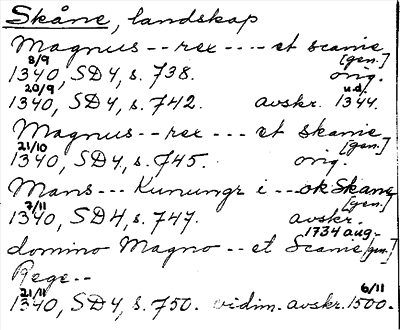 Skåne, landskap
Magnus -- rex ---- et scanie
8/9 [gen.]
1340, SD4, s. 738. orig.
20/9 u.d.
1340, SD4, s. 742. avskr. 1344.
Magnus -- rex --- et skanie
21/10 [gen.]
1340, SD4, s. 745. orig.
Mans --- Kunungr i --- ok Skane
7/11 [gen.]
1340, SD4, s. 747. avskr.
1734 aug.
domino Magno -- et Scanie [gen.]
Rege --
21/11 6/11
1340, SD4, s. 750. vidim. avskr. 1500.